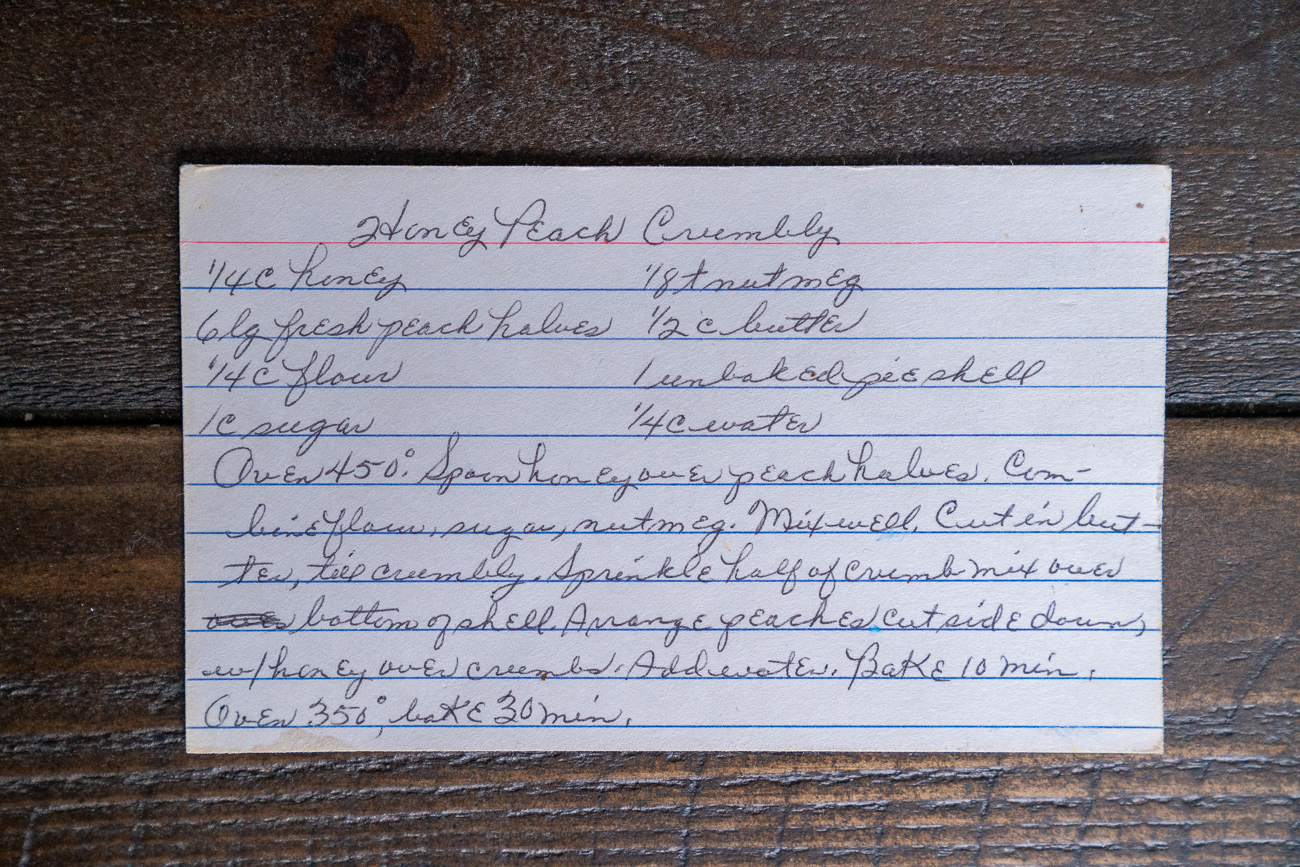 Honey Peach Crumbly
1/4 c honey 1/8 t nutmeg
6 lg fresh peach halves 1/2 c butter
1/4 c flour 1 unbaked pie shell
1 c sugar 1/4 c water
Oven 450°. Spoon honey over peach halves. Com-
bine flour, sugar, nutmeg. Mix well. Cut in but-
ter, till crumbly. Sprinkle half of crumb mix over
bottom of shell. Arrange peaches cut side down,
w/honey over crumbs. Add water. Bake 10 min.
Oven 350°, bake 30 min.